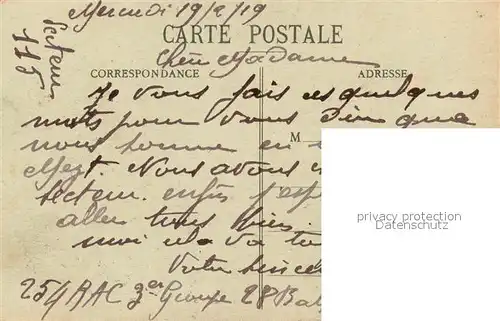 Mercredi 19/2/19
Secteur
115
CARTE POSTALE
Chère Madame
CORRESPONDANCE
ADRESSE
Je vous fais ces quelques
mots pour vous dire que
M
nous sommes en
Nous avons
secteur. enfin j'esp
aller tous bien.
moi cela va
Votre
254 RAC 3em Groupe 28 Bat
privacy protection
Datenschutz